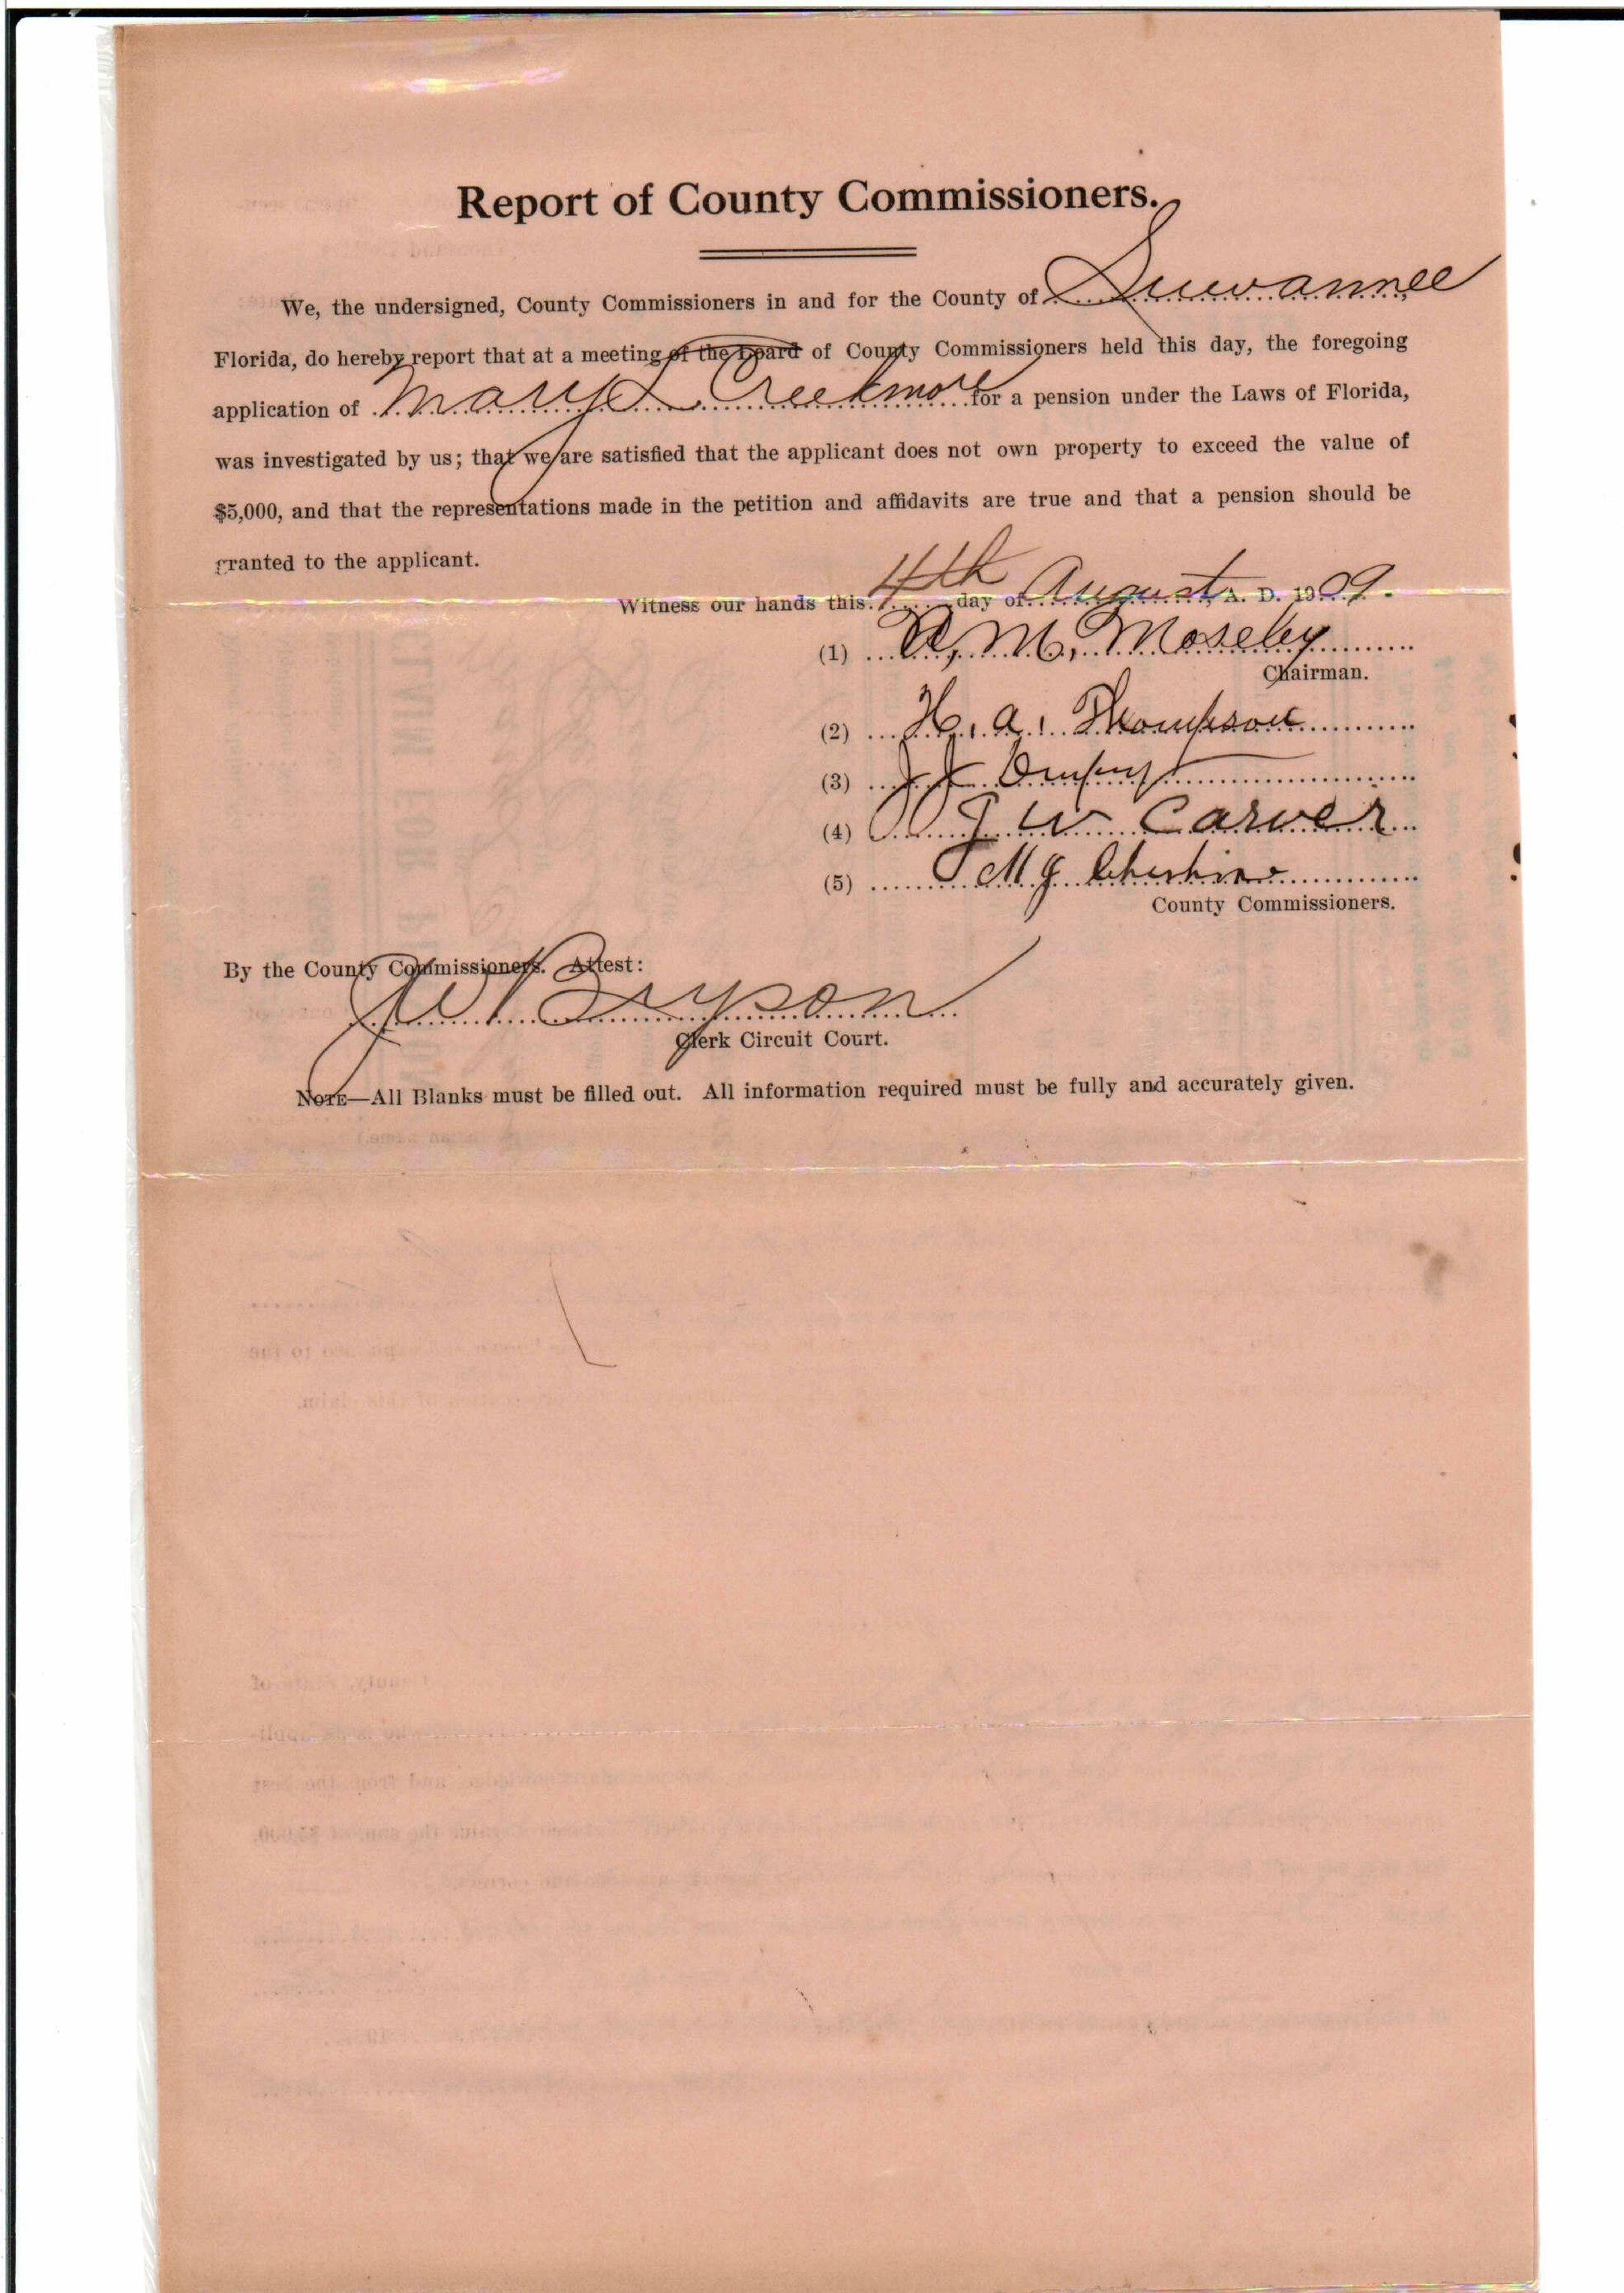 Report of County Commissioners.
We, the undersigned, County Commissioners in and for the County of Suwannee
Florida, do hereby report that at a meeting of the board of County Commissioners held this day, the foregoing
application of Mary L Creekmore for a pension under the Laws of Florida,
was investigated by us; that we are satisfied that the applicant does not own property to exceed the value of
$5,000, and that the representations made in the petition and affidavits are true and that a pension should be
granted to the applicant.
Witness our hands this 4th day of August, A. D. 1909.
(1) M. Moseley
Chairman.
(2) H. A. Thompson
(3) J J
(4) J W Carver
(5) M J Cheshire
County Commissioners.
By the County Commissioners. Attest:
Bryson
Clerk Circuit Court.
NOTE—All Blanks must be filled out. All information required must be fully and accurately given.